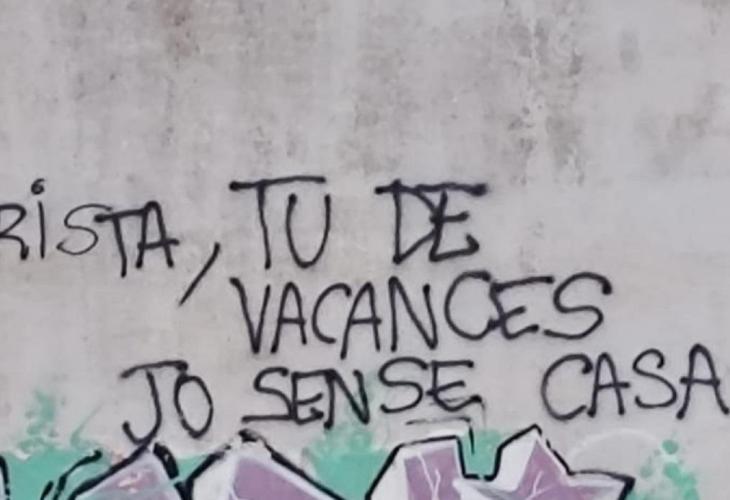 RiSTA, TU DE
VACANCES
JO SENSE CASA